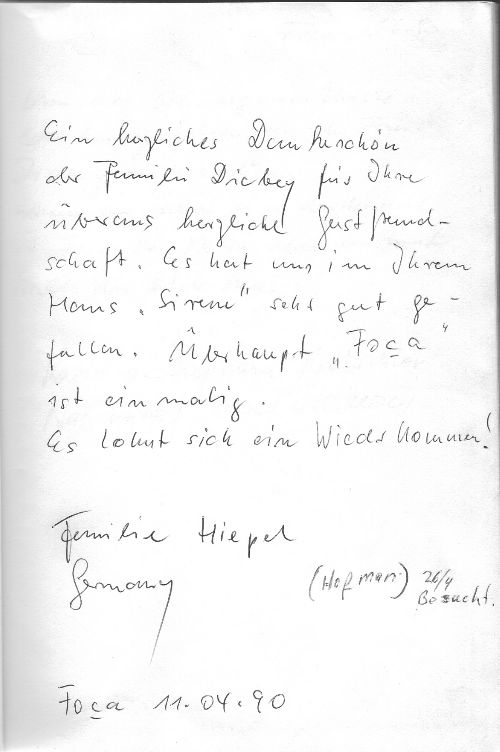 Ein herzliches Dankeschön
der Familie Dicbey für Ihre
überaus herzliche Gastfreund-
schaft. Es hat uns im Ihrem
Haus „Sirene" sehr gut ge-
fallen. Überhaupt „Foça"
ist einmalig.
Es lohnt sich ein Wiederkommen!
Familie Hiepel
Germany
(Hofman) 26/4
Besucht.
Foça 11.04.90